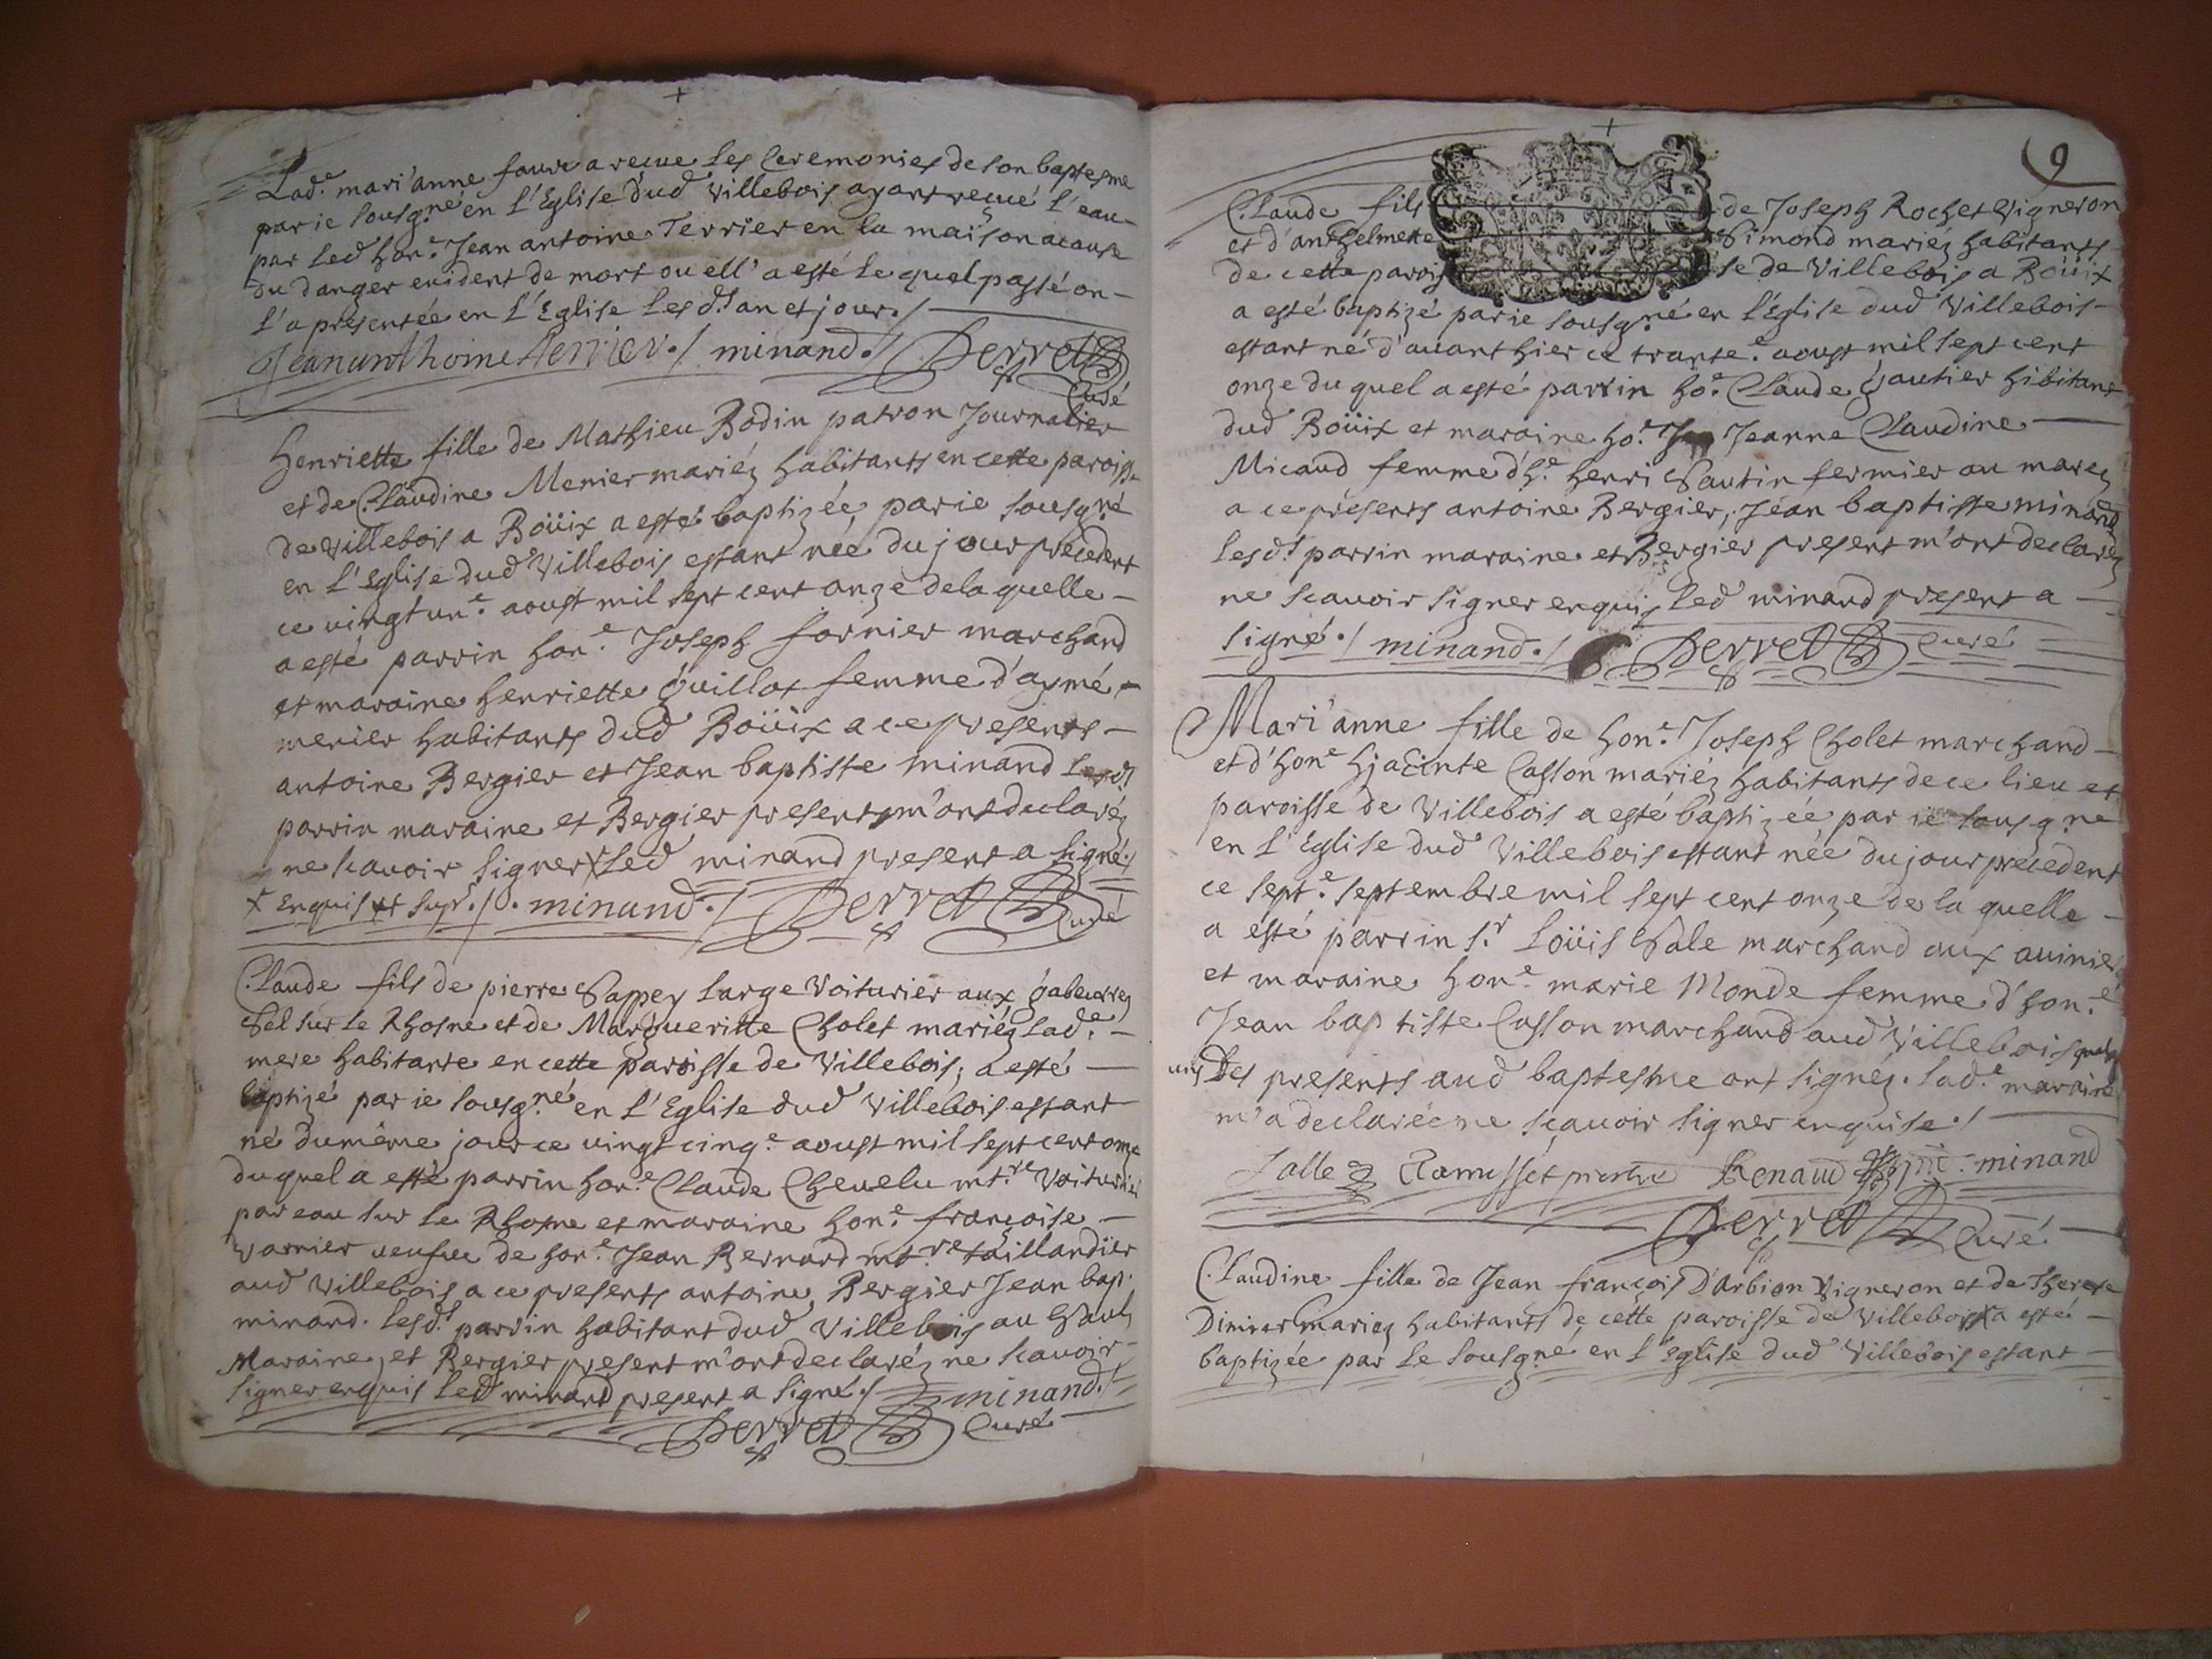 Lad.e mari'anne faure a reçue les Ceremonies de son baptesme
par ie sousg.né en l'Eglise dud Villebois ayant reçué l'eau
par led hon.e Jean antoine Terrier en la maison a cause
du danger evident de mort ou ell' a esté le quel passé on
l'a presentée en l'Eglise les d.s an et jour./
Jeananthoine terrier./ minand./ Perret
Curé
Henriette fille de Mathieu Bodin patron Journalier
et de Claudine Menier mariéz habitants en cette paroisse
de Villebois a Boüix a esté baptizée par ie sousg.né
en l'Eglise dud Villebois estant neé du jour precedent
ce vingt un.e aoust mil sept cent onze de la quelle
a esté parrin hon.e Joseph fornier marchand
et maraine henriette guillot femme d'aymé
menier habitants dud Boüix a ce presents
antoine Bergier et Jean baptiste minand lesd.s
parrin maraine et Bergier presents m'ont declaréz
ne scavoir signer x led minand present a signé./
x enquis et supr./. minand./ Perret Curé
Claude fils de pierre Pappey large Voiturier aux gabeures
sel sur le Rhosne et de Margueritte Cholet mariéz lad.e
mere habitante en cette paroisse de Villebois, a esté
baptizé par ie sousg.né en l'Eglise dud Villebois estant
né du même jour ce vingt cinq.e aoust mil sept cent onze
du quel a esté parrin hon.e Claude Chevelu mt.re Voiturier
par eau sur le Rhosne et maraine hon.e françoise
varnier veufve de hon.e Jean Bernard mt.re taillandier
aud Villebois a ce presents antoine Bergier Jean bap.
minand. lesd.s parrin habitant dud Villebois au
Maraine, et Bergier present m'ont declaréz ne scavoir
signer enquis led minand present a signé./ minand./
Perret Curé
9
Claude fils de Joseph Rochet Vigneron
et d'anthelmette Simond mariéz habitants
de cette paroisse de Villebois a Boüix
a esté baptizé par ie sousg.né en l'Eglise dud Villebois
estant né d'avant hier ce trante.e aoust mil sept cent
onze du quel a esté parrin ho.e Claude gautier hibitant
dud Boüix et maraine ho.e Jeanne Claudine
Micaud femme d'h.e henri Pautin fermier au marez
a ce presents antoine Bergier, Jéan baptiste minand
lesd.s parrin maraine et Bergier present m'ont declaréz
ne scavoir signer enquis led minand present a
signé./ minand./ Perret Curé
Mari'anne fille de hon.e Joseph Cholet marchand
et d'hon.e hjacinte Casson mariéz habitants de ce lieu et
paroisse de Villebois a esté baptizée par ie sousg.ne
en l'Eglise dud Villebois estant née du jour precedent
ce sept.e septembre mil sept cent onze de la quelle
a esté parrin s.r Loüis Sale marchand aux
et maraine hon.e marie Monde femme d'hon.e
Jean baptiste Casson marchand aud Villebois quelq
uns des presents aud baptesme ont signéz. lad.e maraine
m'a declarée ne sçavoir signer enquise./
Salle Ramusset prestre Renaud minand
Perret Curé
Claudine fille de Jean françois D'arbion Vigneron et de Therese
mariez habitants de cette paroisse de Villebois a esté
baptizée par le sousg.né en l'Eglise dud Villebois estant